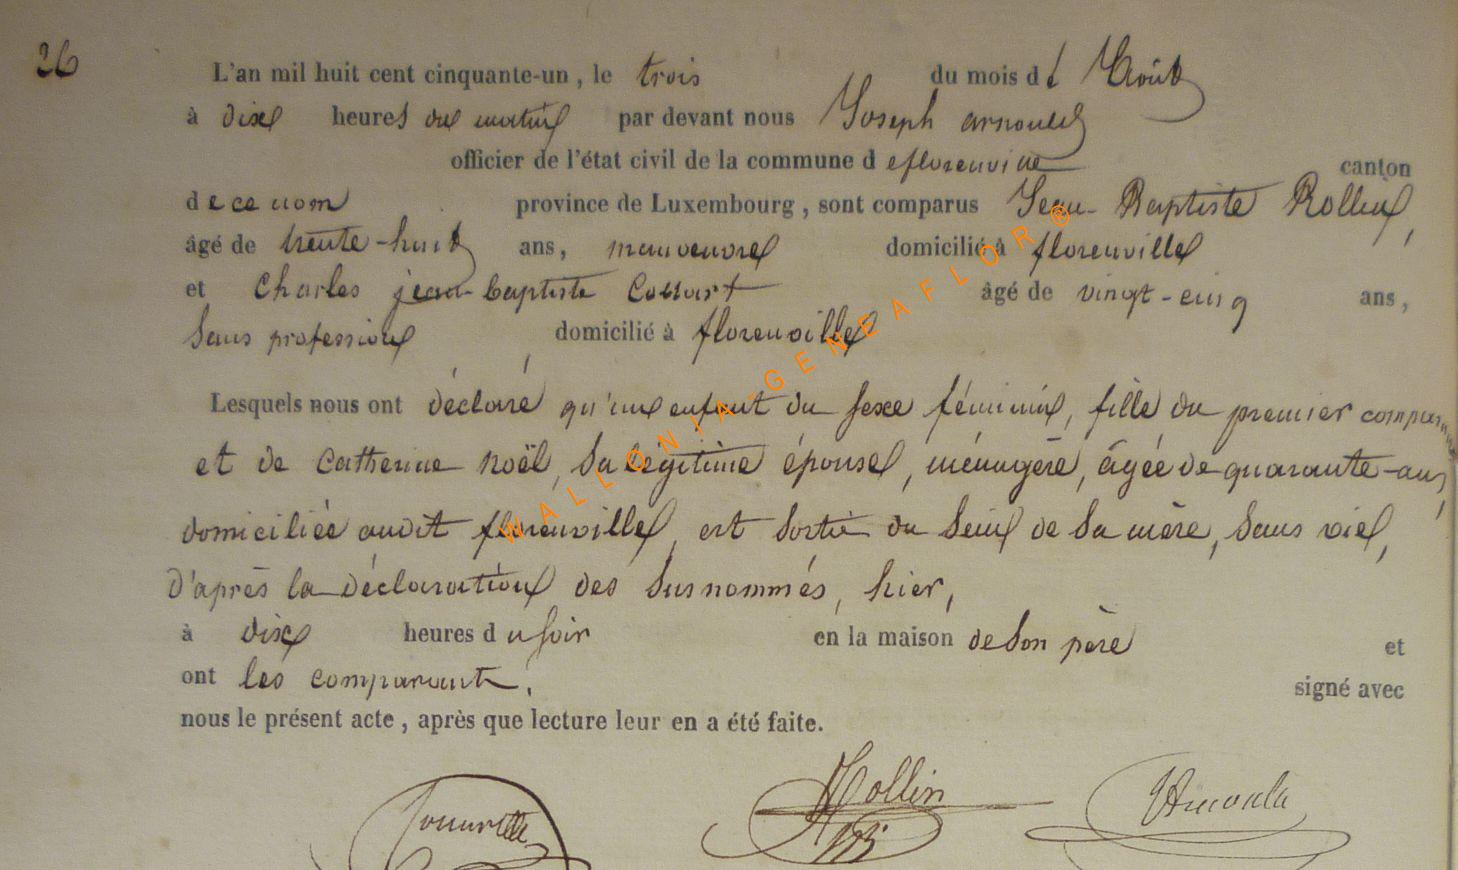 26
L'an mil huit cent cinquante-un, le trois du mois d'Août
à dix heures du matin par devant nous Joseph arnould
officier de l'état civil de la commune de florenville canton
de ce nom province de Luxembourg, sont comparus Jean-Baptiste Rollin,
âgé de trente-huit ans, manœuvre domicilié à florenville
et Charles jean-baptiste âgé de vingt-cinq ans,
sans profession, domicilié à florenville
Lesquels nous ont déclaré qu'un enfant du sexe féminin, fille du premier comparant
et de Catherine Noël, sa légitime épouse, ménagère, âgée de quarante-ans,
domiciliée audit florenville, est sortie du sein de sa mère, sans vie,
d'après la déclaration des susnommés, hier,
à dix heures du soir en la maison de son père et
ont les comparants, signé avec
nous le présent acte, après que lecture leur en a été faite.
Rollin
JB
WALLONIA-GENEAFLOR®